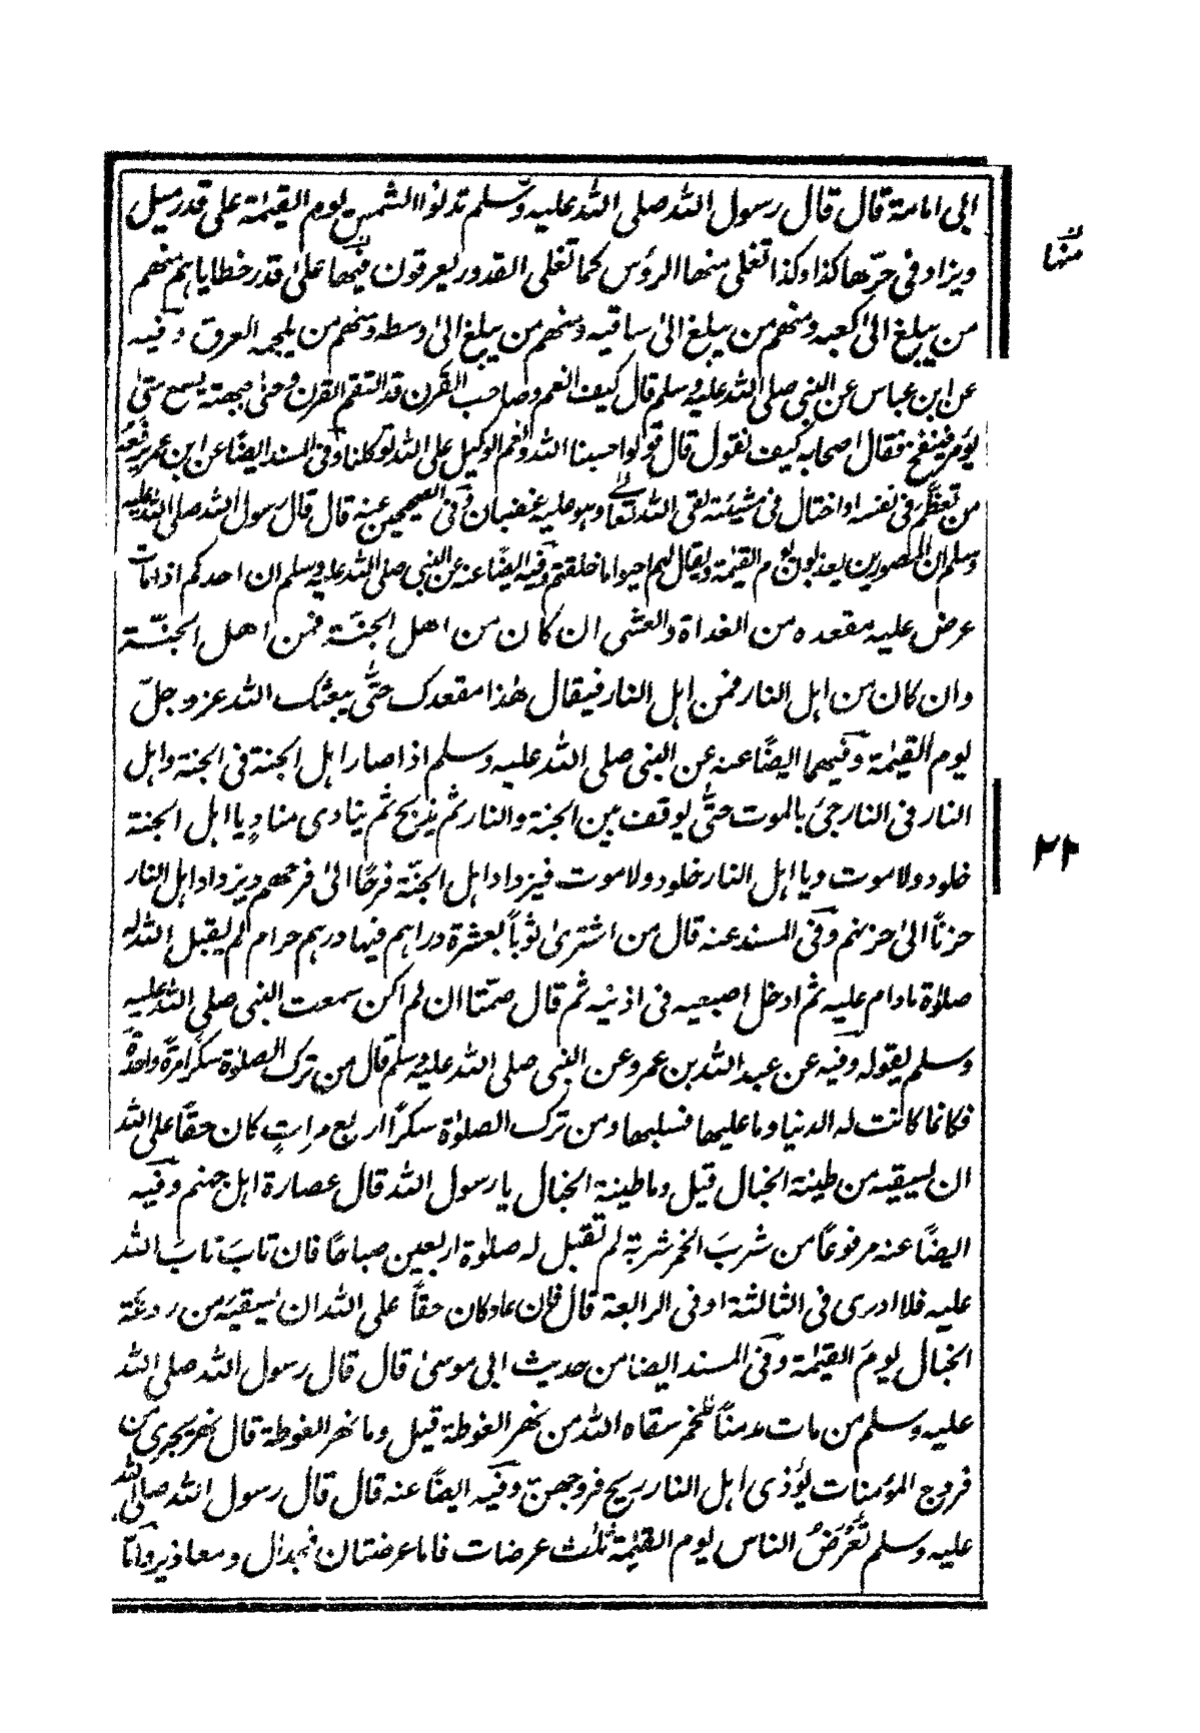 ابى امامة قال قال رسول الله صلى الله عليه وسلم تدنوا الشمس يوم القيٰمة على قدر ميل
ويزاد فى حرّها كذا وكذا تغلى منها الرؤس كما تغلى القدور يعرقون فيها علىٰ قدر خطاياهم منهم
من يبلغ الىٰ كعبه ومنهم من يبلغ الىٰ ساقيه ومنهم من يبلغ الىٰ وسطه ومنهم من يلجمه العرق وفيه
عن ابن عباس عن النبى صلى الله عليه وسلم قال كيف انعم وصاحب القرن قد التقم القرن وحنىٰ جبهته يسمع متىٰ
يؤمر فينفخ فقال اصحابه كيف نقول قال قولوا حسبنا الله ونعم الوكيل على الله توكلنا وفى المسند ايضًا عن ابن عمر يرفعه
من تعظّم فى نفسه او اختال فى مشيئته لقى الله تعالى وهو عليه غضبان وفى الصحيحين عنه قال قال رسول الله صلى الله عليه
وسلم ان المصورين يعذبون يوم القيٰمة ويقال لهم احيوا ما خلقتم وفيه ايضًا عنه عن النبى صلى الله عليه وسلم ان احدكم اذا مات
عرض عليه مقعده من الغداة والعشى ان كان من اهل الجنّة فمن اهل الجنّة
وان كان من اهل النار فمن اهل النار فيقال هٰذا مقعدك حتّٰى يبعثك الله عز وجلّ
يوم القيٰمة وفيهما ايضًا عنه عن النبى صلى الله عليه وسلم اذا صار اهل الجنة فى الجنة واهل
النار فى النار جئ بالموت حتّٰى يوقف بين الجنة والنار ثم يذبح ثم ينادى منادٍ يا اهل الجنة
خلود ولا موت ويا اهل النار خلود ولا موت فيزداد اهل الجنّة فرحًا الىٰ فرحهم ويزداد اهل النار
حزنًا الىٰ حزنهم وفى المسند عنه قال من اشترىٰ ثوبًا بعشرة دراهم فيها درهم حرام لم يقبل الله له
صلوٰة مادام عليه ثم ادخل اصبعيه فى اذنيه ثم قال صمّتا ان لم اكن سمعت النبى صلى الله عليه
وسلم يقوله وفيه عن عبد الله بن عمرو عن النبى صلى الله عليه وسلم قال من ترك الصلوٰة سكرًا مرةً واحدةً
فكانما كانت له الدنيا وما عليها فسلبها ومن ترك الصلوٰة سكرًا اربع مراتٍ كان حقًا على الله
ان يسيقيه من طينة الخبال قيل وما طينة الخبال يا رسول الله قال عصارة اهل جهنم وفيه
ايضًا عنه مرفوعًا من شربَ الخمر شربةً لم تقبل له صلوٰة اربعين صباحًا فان تابَ تابَ الله
عليه فلا ادرى فى الثالثة او فى الرابعة قال فان عاد كان حقًا على الله ان يسيقيَه من ردغَة
الخبال يومَ القيٰمة وفى المسند ايضا من حديث ابى موسىٰ قال قال رسول الله صلى الله
عليه وسلم من مات مدمنًا للخمر سقاه الله من نهر الغوطة قيل وما نهر الغوطة قال نهر يجرى من
فروج المؤمنات يؤذى اهل النار ريح فروجهنّ وفيه ايضًا عنه قال قال رسول الله صلى الله
عليه وسلم تُعْرَضُ الناس يوم القيٰمة ثلٰث عرضات فاما عرضتان فجدال ومعاذير وامّا
٢٢